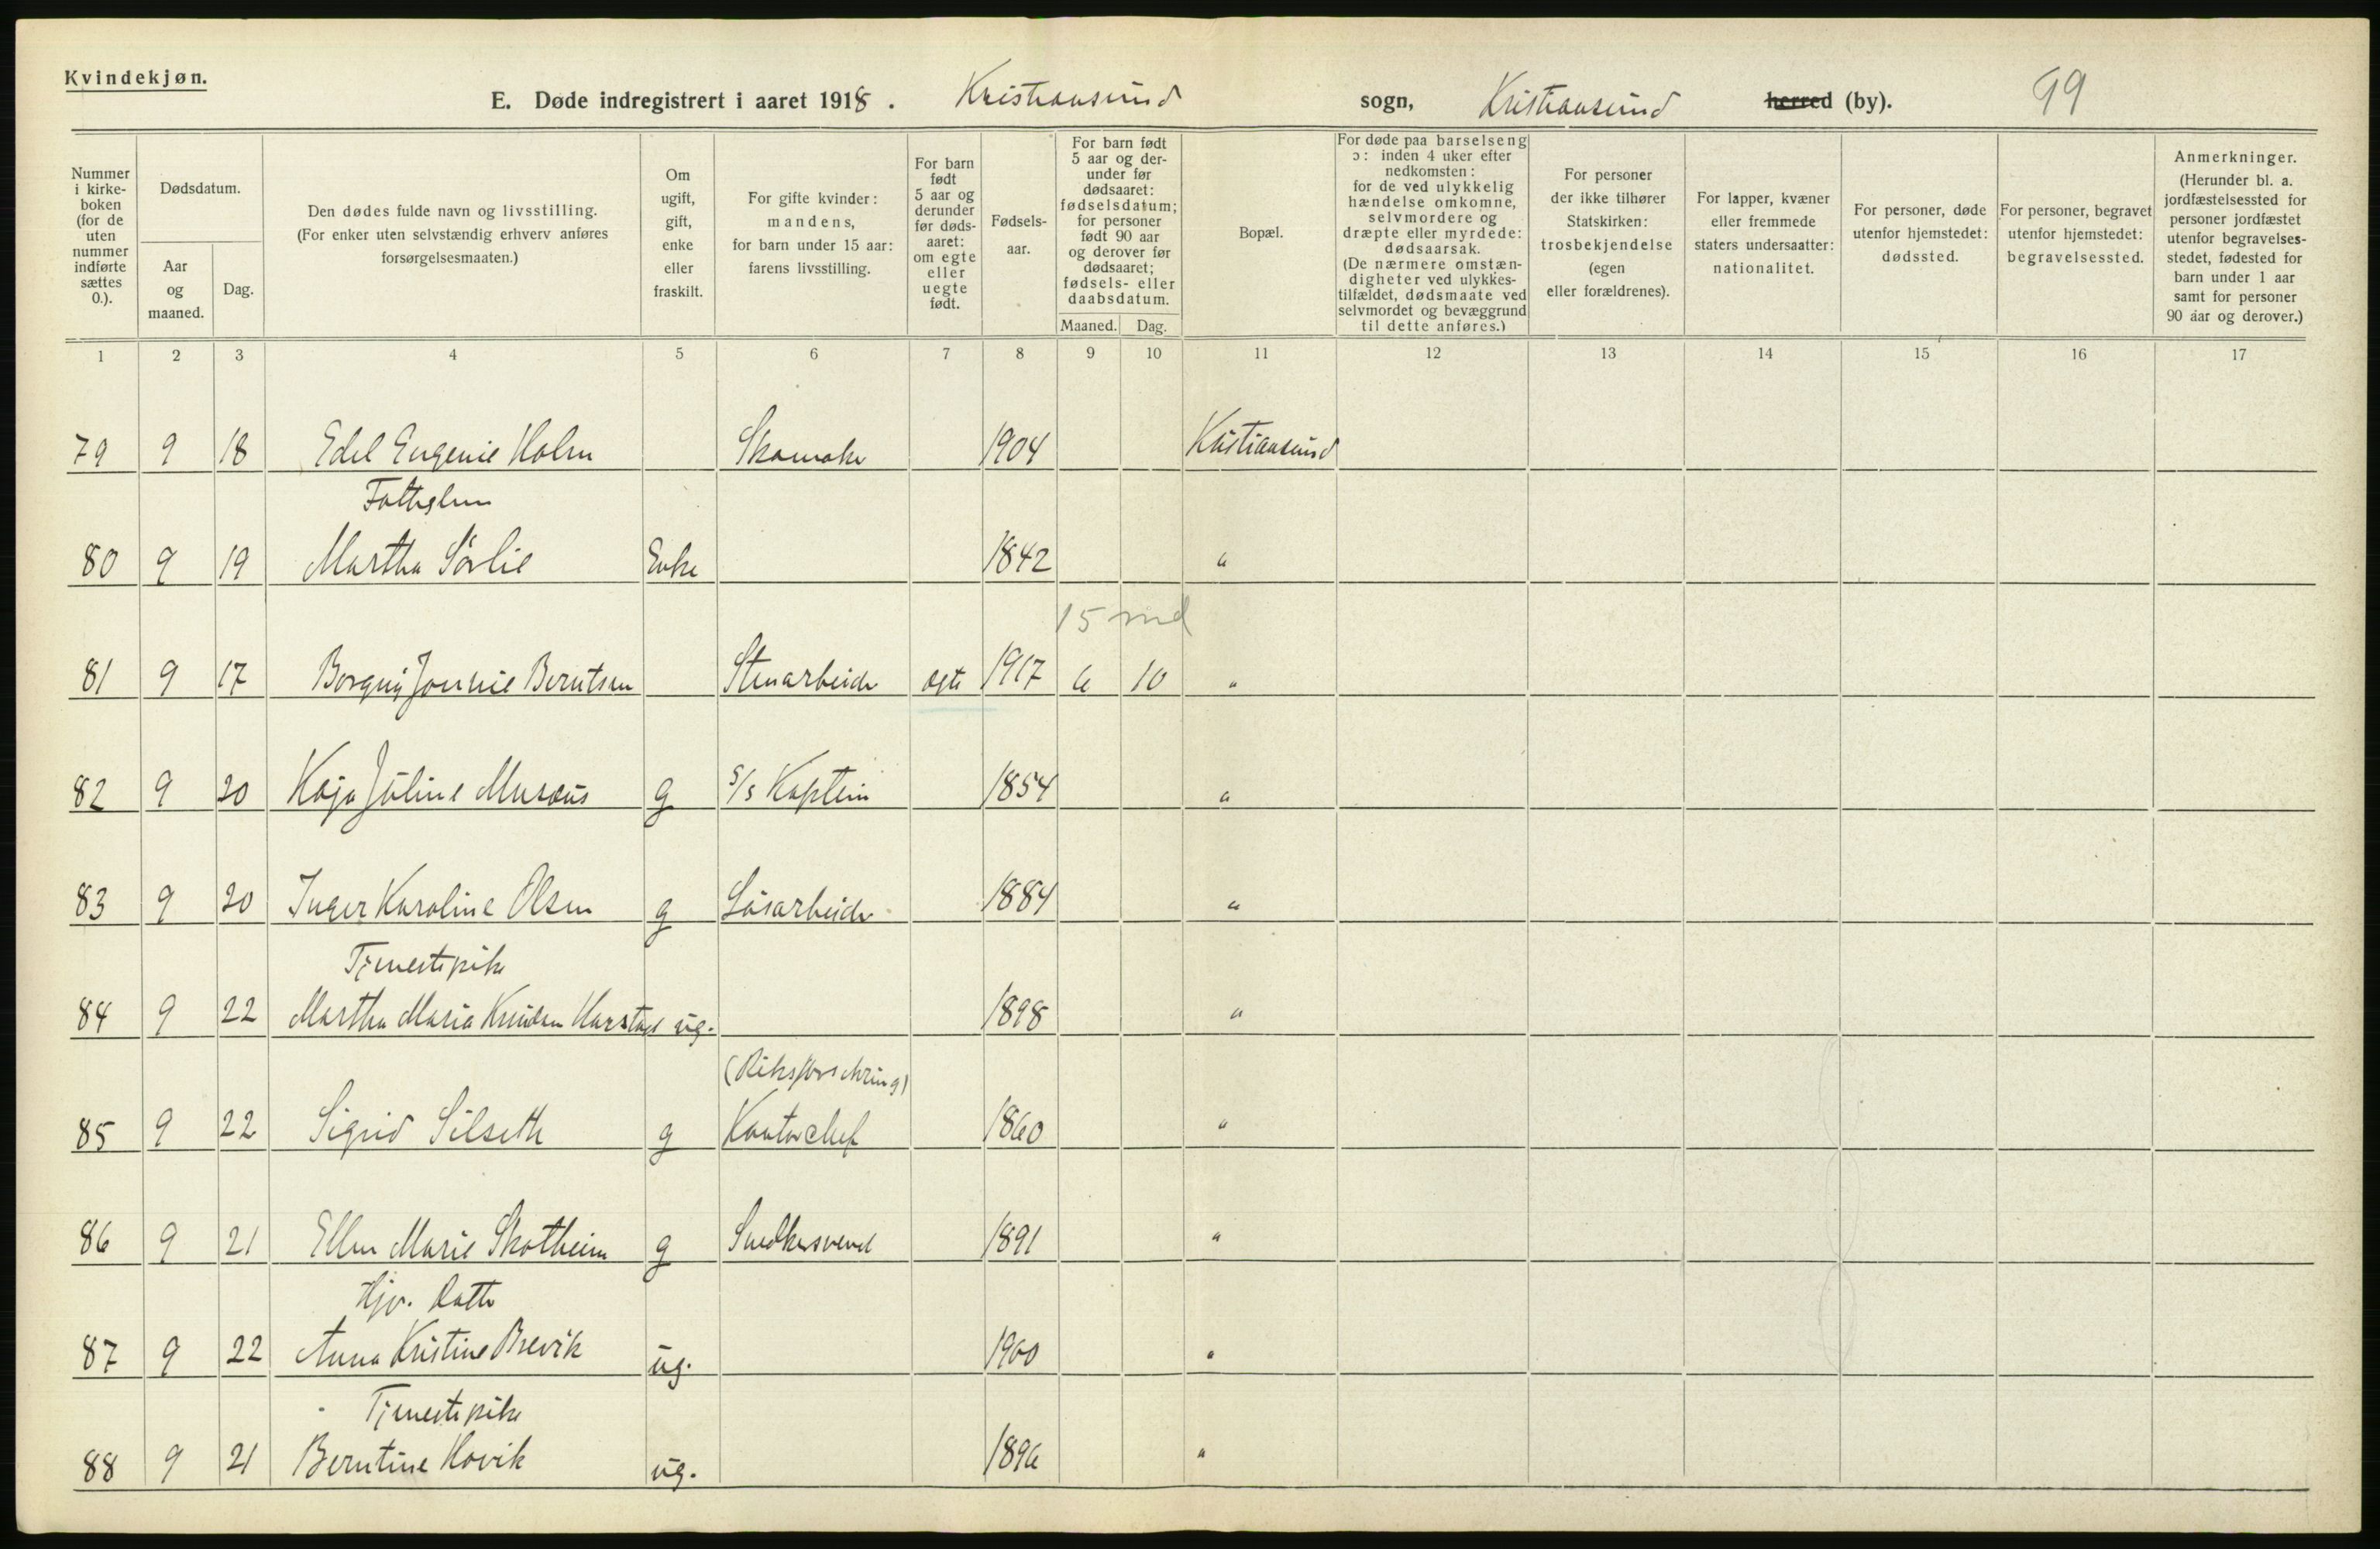 Kvindekjøn.
E. Døde indregistrert i aaret 1918. Kristiansund sogn, Kristiansund herred (by). 99
Nummer i kirkeboken (for de uten nummer indførte sættes 0.).
Dødsdatum.
Aar og maaned.
Dag.
Den dødes fulde navn og livsstilling. (For enker uten selvstændig erhverv anføres forsørgelsesmaaten.)
Om ugift, gift, enke eller fraskilt.
For gifte kvinder: mandens, for barn under 15 aar: farens livsstilling.
For barn født 5 aar og derunder før dødsaaret: om egte eller uegte født.
Fødselsaar.
For barn født 5 aar og derunder før dødsaaret: fødselsdatum; for personer født 90 aar og derover før dødsaaret; fødsels- eller daabsdatum.
Maaned. Dag.
Bopæl.
For døde paa barselseng ɔ: inden 4 uker efter nedkomsten: for de ved ulykkelig hændelse omkomne, selvmordere og dræpte eller myrdede: dødsaarsak. (De nærmere omstændigheter ved ulykkestilfældet, dødsmaate ved selvmordet og bevæggrund til dette anføres.)
For personer der ikke tilhører Statskirken: trosbekjendelse (egen eller forældrenes).
For lapper, kvæner eller fremmede staters undersaatter: nationalitet.
For personer, døde utenfor hjemstedet: dødssted.
For personer, begravet utenfor hjemstedet: begravelsessted.
Anmerkninger. (Herunder bl. a. jordfæstelsessted for personer jordfæstet utenfor begravelsesstedet, fødested for barn under 1 aar samt for personer 90 aar og derover.)
1 2 3 4 5 6 7 8 9 10 11 12 13 14 15 16 17
79 9 18 Edel Eugenie Holm Skomaker 1904 Kristiansund
80 9 19 Martha Sörlie Enke 1842 "
15 md
81 9 17 Borgny Jonnie Berntsen Stenarbeider egte 1917 6 10 "
82 9 20 Kaja Juline Musæus g S/s Kaptein 1854 "
83 9 20 Inger Karoline Olsen g Løsarbeider 1884 "
Tjenestepike
84 9 22 Martha Maria Knudsen Harstad ug. 1898 "
(Riksforsikring)
85 9 22 Sigrid Silseth g Kontorchef 1860 "
86 9 21 Ellen Marie Skotheim g Snedkersvend 1891 "
Hjv. Datter
87 9 22 Anna Kristine Brevik ug. 1900 "
Tjenestepike
88 9 21 Berntine Hovik ug. 1896 "